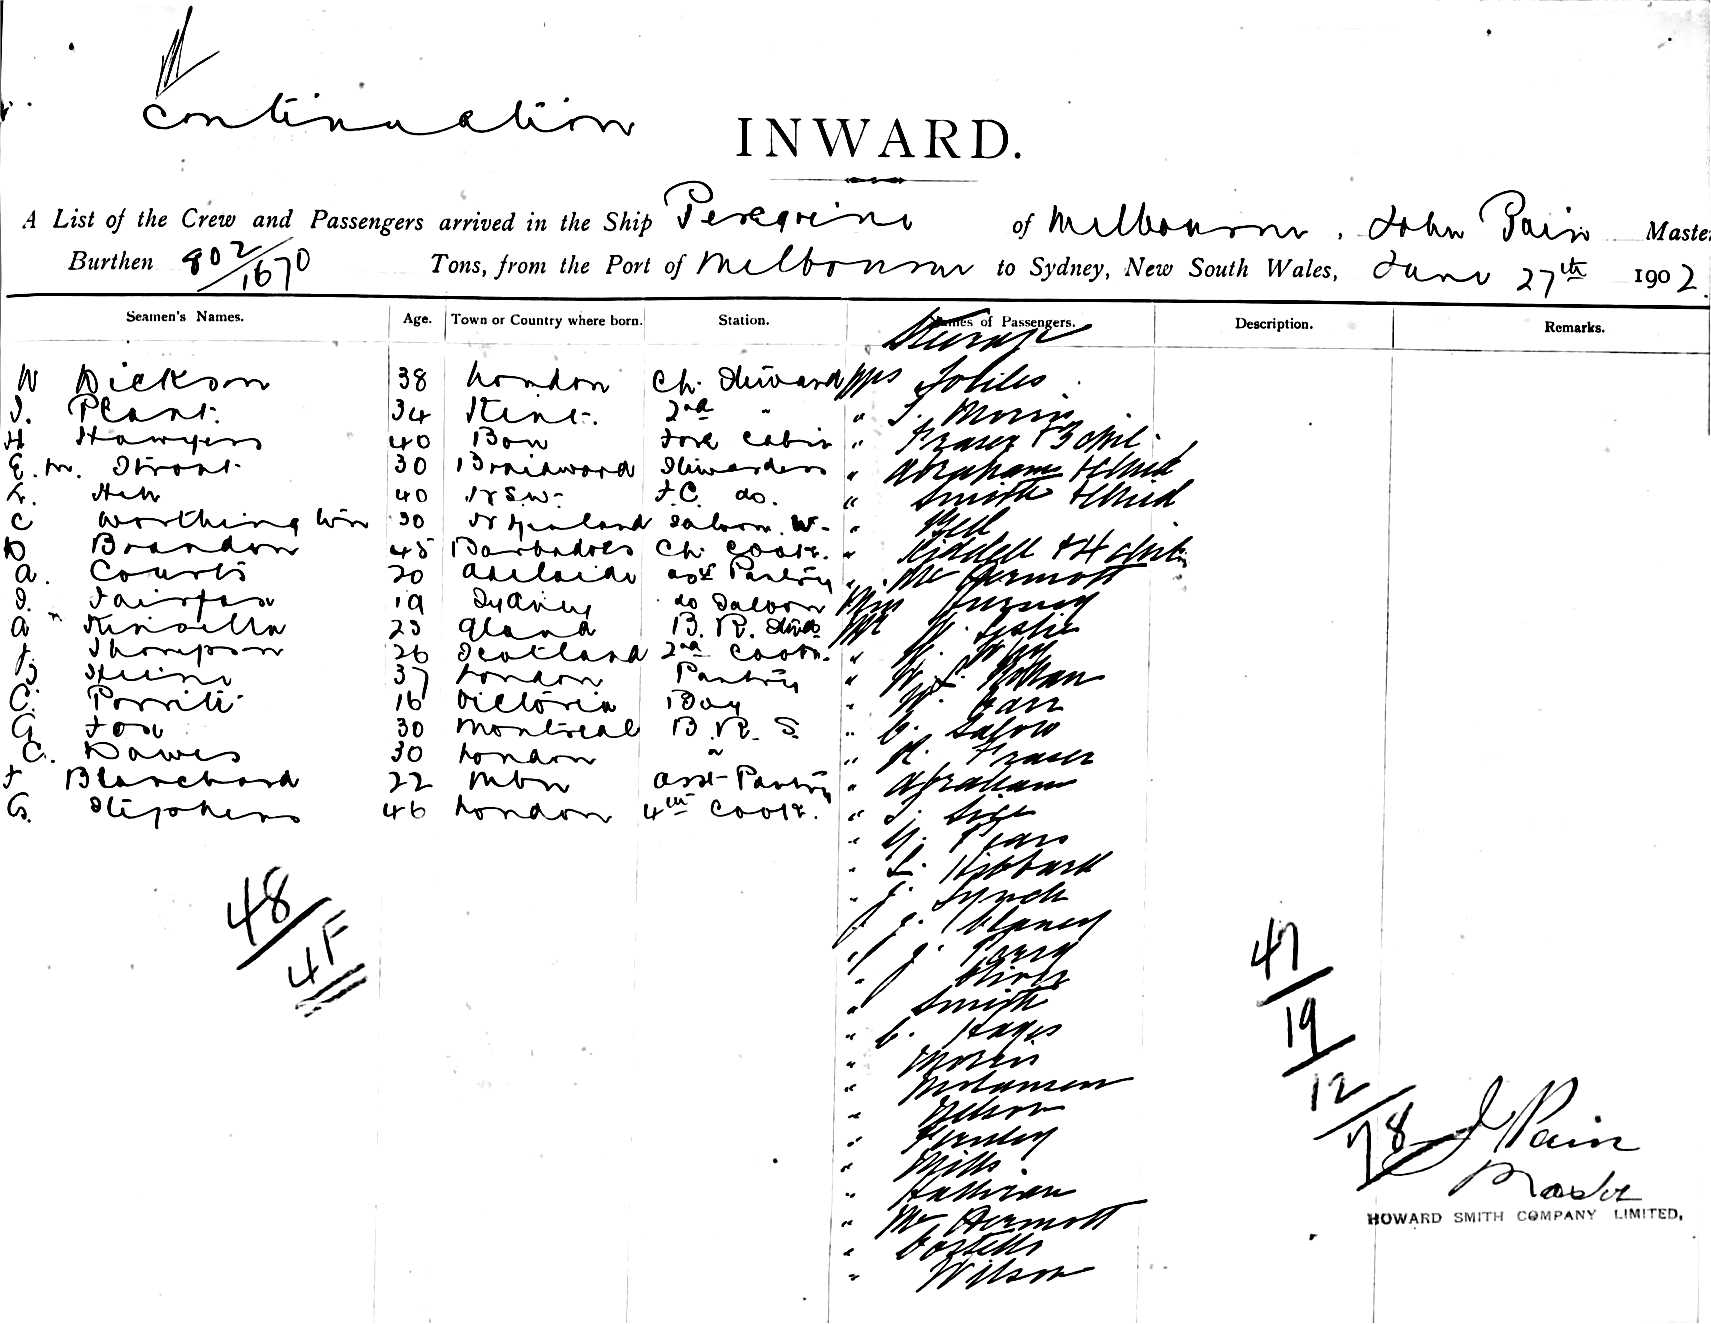 Continuation
INWARD.
A List of the Crew and Passengers arrived in the Ship Peregrine of Melbourne, John Pain Master
Burthen 802/1670 Tons, from the Port of Melbourne to Sydney, New South Wales, June 27th 1902.
Seamen's Names. Age. Town or Country where born. Station. Names of Passengers. Description. Remarks.
Steerage
W Dickson 38 London Ch. Steward Mrs
J. Plant 34 Kent 2nd " " J. Morris
H Hawyers 40 Bow Fore Cabin " Fraser & 3 chil.
E. M. Stroat 30 Braidwood Stewardess " Abrahams & Child
L. 40 N.S.W. F.C. do. " Smith & Child
C Worthington 30 Saloon W. " Bell
D Brandon 45 Barbadoes Ch. Cook. " Riddell & 4 chil.
A. Courts 20 Adelaide asst Pantry " McDermott
J. Fairfax 19 Sydney do Saloon Miss
A Kinsella 23 B. R. Mr W. Leslie
Thompson 26 Scotland 2nd Cook. "
37 London Pantry "
C. Porritt 16 Victoria Boy " Carr
G Fox 30 Montreal B. R. S. " C.
C. Dawes 30 London " " Fraser
F Blanchard 22 Mbn asst Pantry " Abraham
G. Stephens 46 London 4th Cook. "
"
" L. Hibbard
" J. Lynch
J. Clancy
" J. Parry
" Oliver
" Smith
" C. Hayes
" Morris
"
" Nelson
"
" Mills
" Hallinan
" McDermott
" Costello
" Wilson
48
4F
47
19
12
78
J Pain
Master
HOWARD SMITH COMPANY LIMITED,